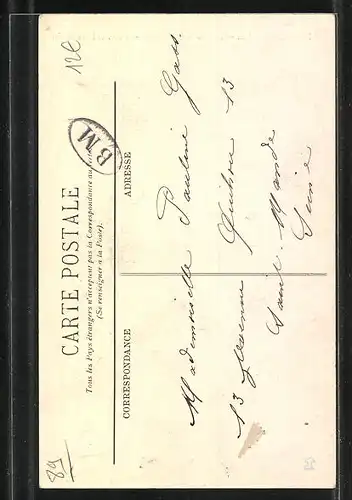 12€
BM
CARTE POSTALE
Tous les Pays étrangers n'acceptent pas la Correspondance au verso
(Se renseigner à la Poste).
CORRESPONDANCE
ADRESSE
Mademoiselle Pauline Gass.
13 Avenue Quihou 13
Saint-Mandé
Seine
89